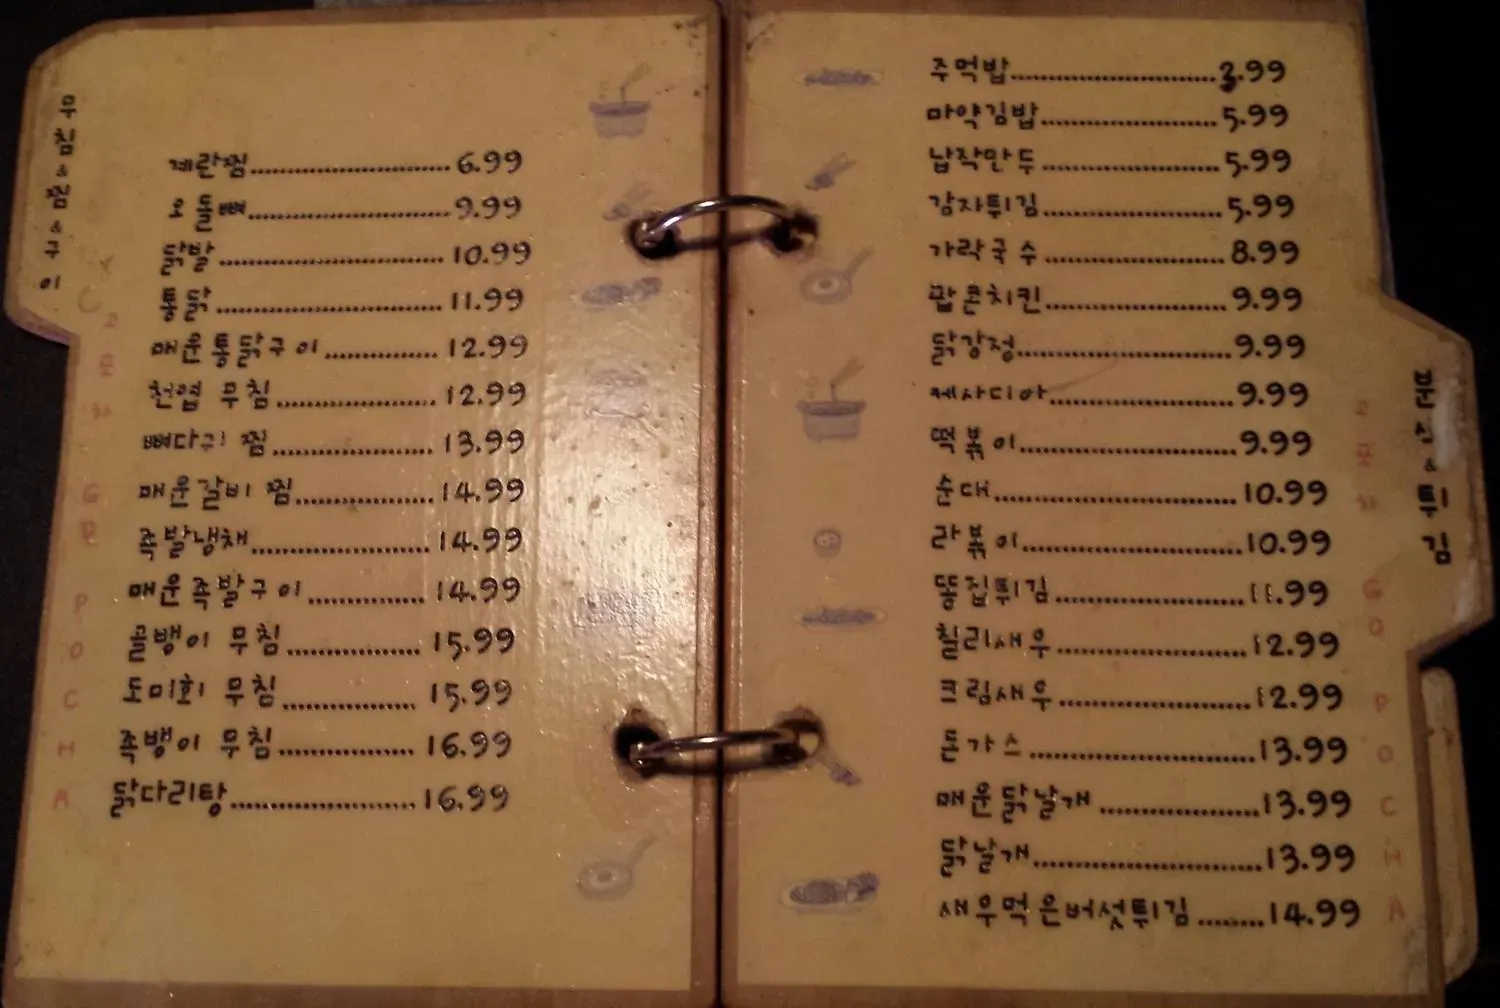 무침 & 찜 & 구이
계란찜..........6.99
오돌뼈..........9.99
닭발..........10.99
통닭..........11.99
매운통닭구이..........12.99
천엽 무침..........12.99
뼈다귀 찜..........13.99
매운갈비 찜..........14.99
족발냉채..........14.99
매운족발구이..........14.99
골뱅이 무침..........15.99
도미회 무침..........15.99
족뱅이 무침..........16.99
닭다리탕..........16.99
POCHA
주먹밥..........3.99
마약김밥..........5.99
납작만두..........5.99
감자튀김..........5.99
가락국수..........8.99
팝콘치킨..........9.99
닭강정..........9.99
케사디아..........9.99
떡볶이..........9.99
순대..........10.99
라볶이..........10.99
똥집튀김..........11.99
칠리새우..........12.99
크림새우..........12.99
돈가스..........13.99
매운닭날개..........13.99
닭날개..........13.99
새우먹은버섯튀김..........14.99
튀김
GO POCHA